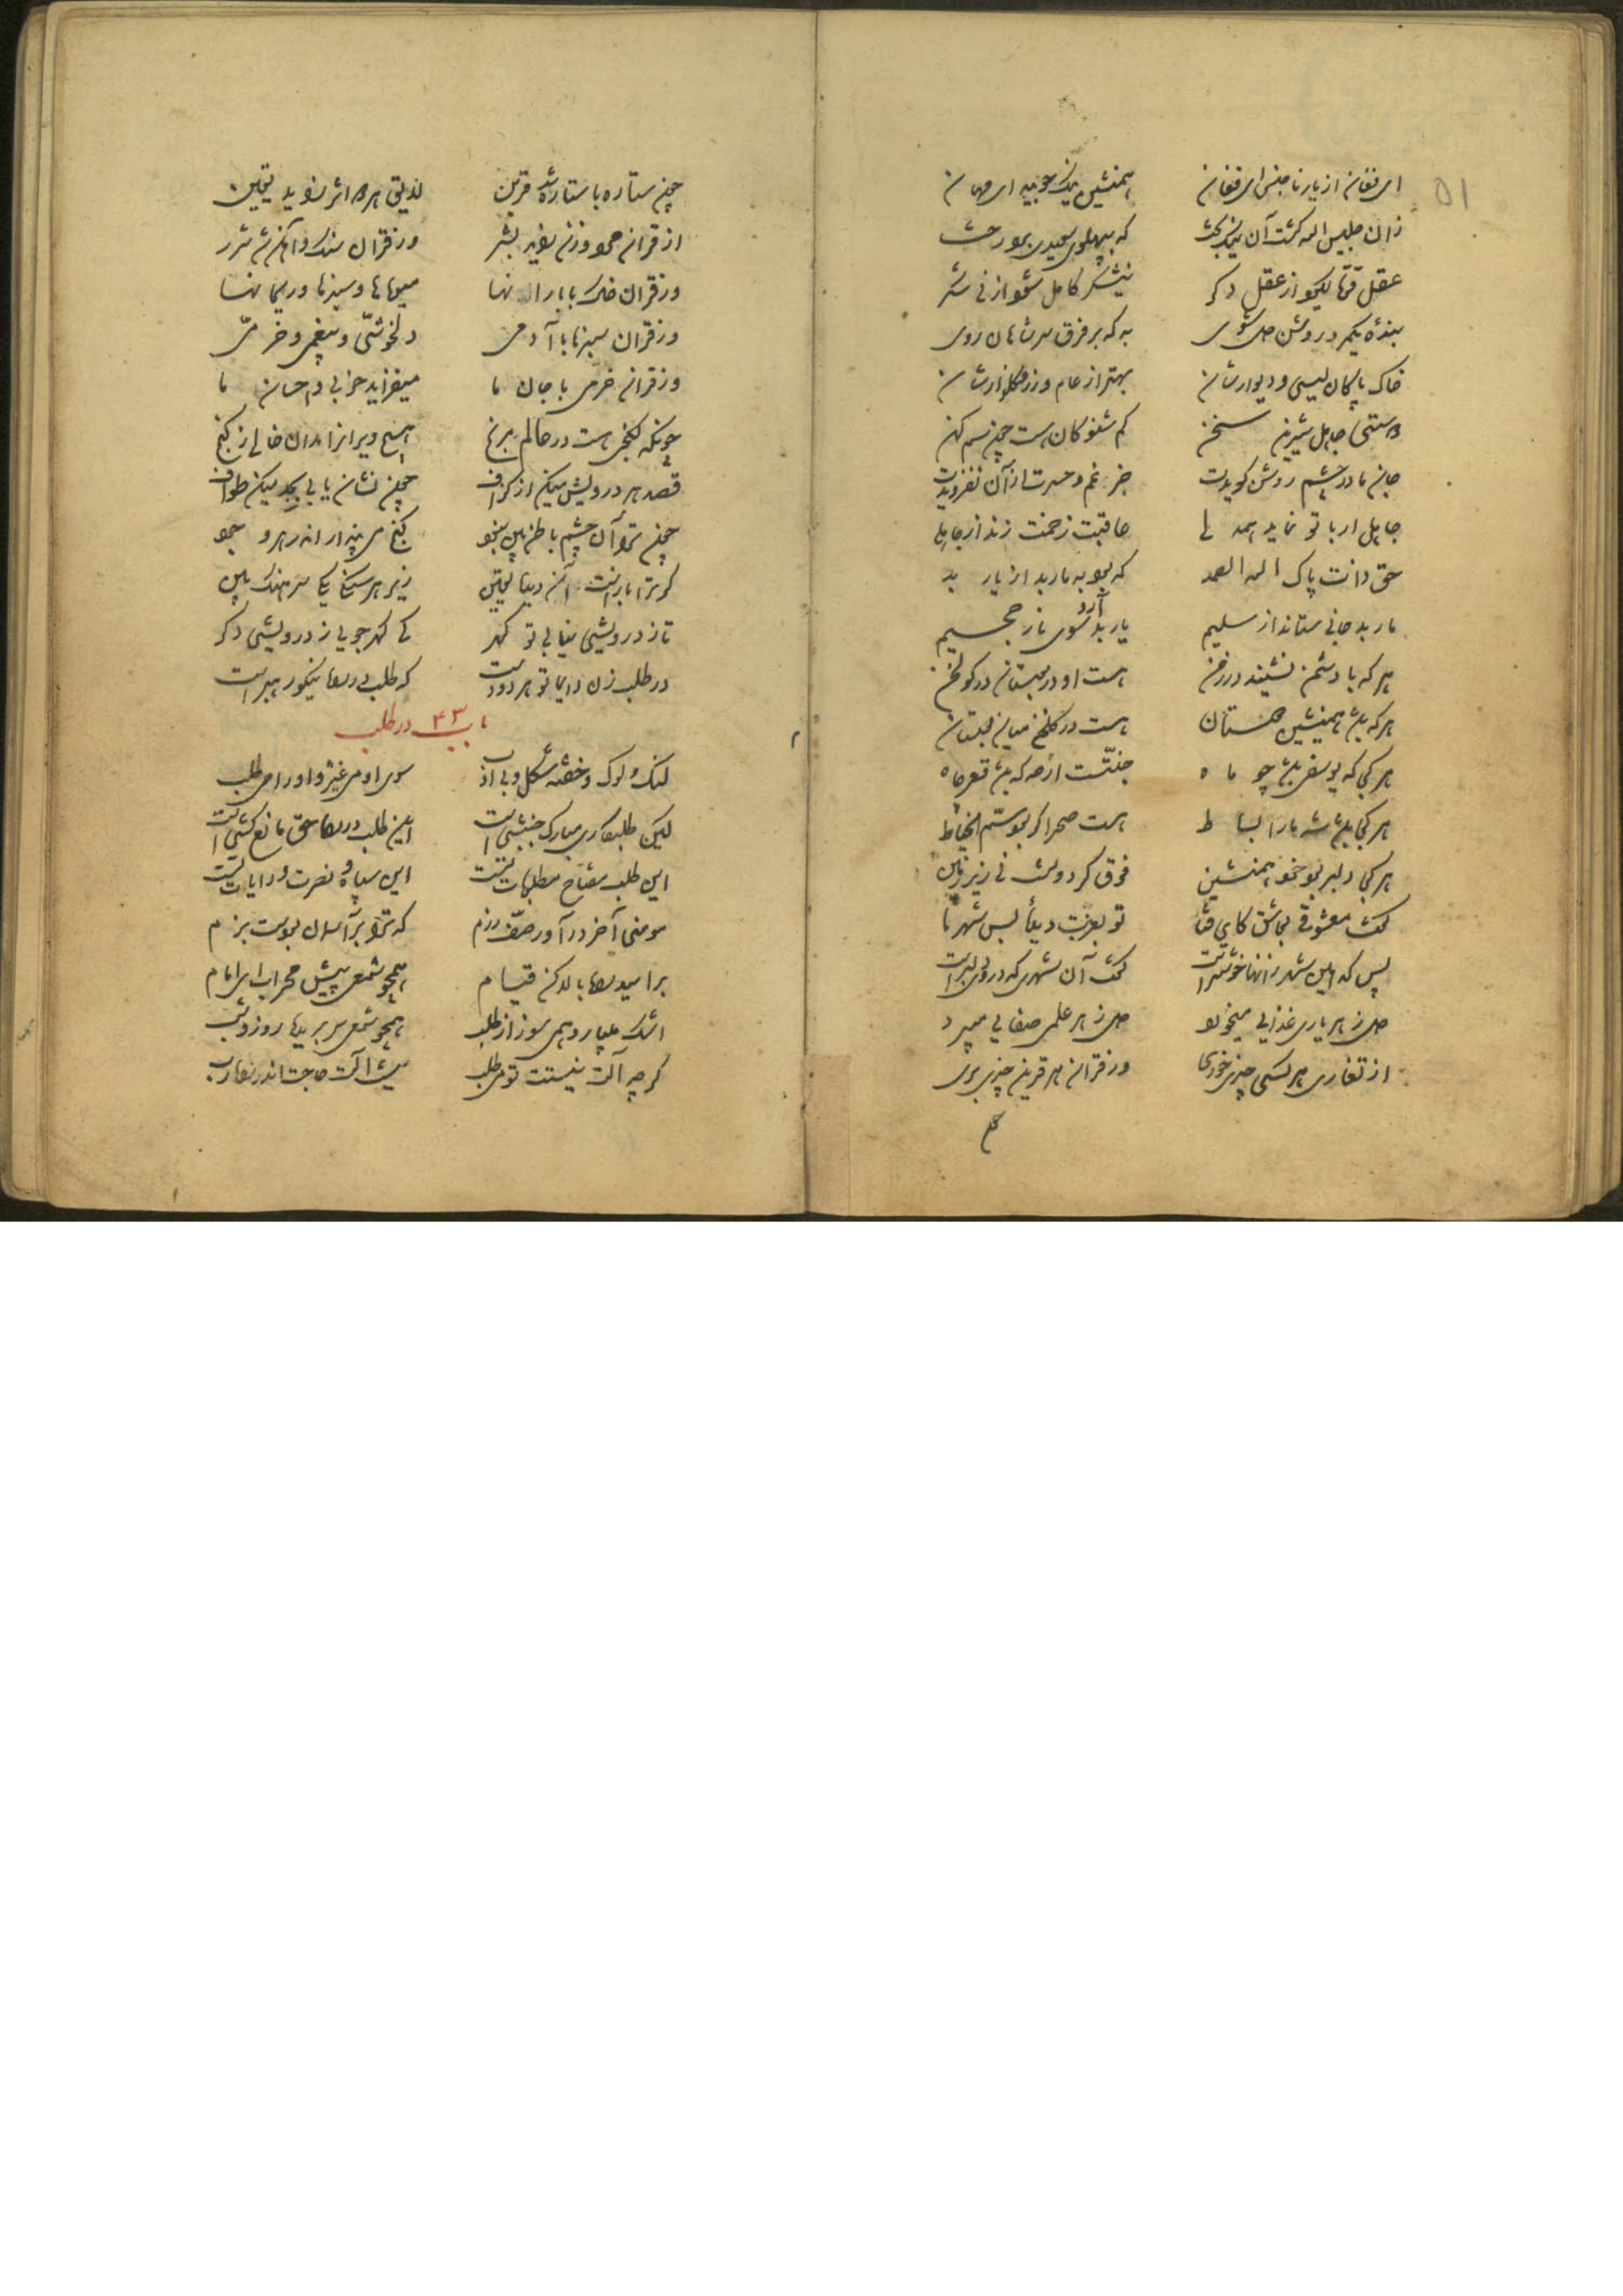 ۵۱
ای فغان از یار ناجنس ای فغان همنشین نیک جویید ای مهان
که بپهلوی سعیدی برد رخت
عقل قوت گیرد از عقل دگر نیشکر کامل شود از نی شکر
بنده یک مرد روشن دل شوی به که بر فرق سر شاهان روی
خاک پاکان لیسی و دیوارشان بهتر از عام و زر و گلزارشان
جاهل شیرین سخن کم شنو کان هست چون سم کهن
جان مادر چشم روشن گویدت جز غم و حسرت از آن نفزویدت
جاهل ار با تو نماید همدلی عاقبت زخمت زند از جاهلی
حق ذات پاک الله الصمد که بود به مار بد از یار بد
مار بد جانی ستاند از سلیم یار بد آرد سوی نار جحیم
هر که با دشمن نشیند در زمن هست او در بوستان در گولخن
هر که باشد همنشین دوستان هست در گلخن میان بوستان
هر کجا که یوسفی باشد چو ماه جنتست ارچه که باشد قعر چاه
هر کجا باشد شه ما را بساط هست صحرا گر بود سم الخیاط
هر کجا دلبر بود خود همنشین فوق گردونست نی زیر زمین
گفت معشوقی بعاشق کای فتا تو بغربت دیدۀ بس شهرها
پس کدامین شهر زانها خوشترست گفت آن شهری که در وی دلبرست
دل ز هر یاری غذایی میخورد دل ز هر علمی صفایی میبرد
از لقای هر کسی چیزی خوری وز قران هر قرین چیزی بری
چون ستاره با ستاره شد قرین لایق هر دو اثر زاید یقین
از قران مرد و زن زاید بشر وز قران سنگ و آهن شد شرر
وز قران خاک با بارانها میوها و سبزها و ریحانها
وز قران سبزها با آدمی دلخوشی و بیغمی و خرمی
وز قران خرمی با جان ما میفزاید خوبی و احسان ما
چونکه گنجی هست در عالم مرنج هیچ ویران را مدان خالی ز گنج
قصد هر درویش میکن از گزاف چون نشان یابی بجد میکن طواف
چون ترا آن چشم باطن بین نبود گنج می پندار اندر هر وجود
تا ز درویشی نیابی تو گهر کی گهر جویی ز درویشی دگر
در طلب زن دایما تو هر دو دست که طلب در راه نیکو رهبرست
باب ۴۳ در طلب
لنگ و لوک و خفته شکل و بی ادب سوی او می غیژ و او را می طلب
لیکن این طلب در راه حق مانع کشی است
این طلب مفتاح مطلوبات تست این سپاه و نصرت و رایات تست
که ترا بر آسمان بودست بزم
بر امید راه بالا کن قیام همچو شمعی پیش محراب ای امام
اشک میبار و همی سوز از طلب همچو شمعی سر بریده روز و شب
گرچه آلت نیستت تو می طلب نیست آلت حاجت اندر راه رب